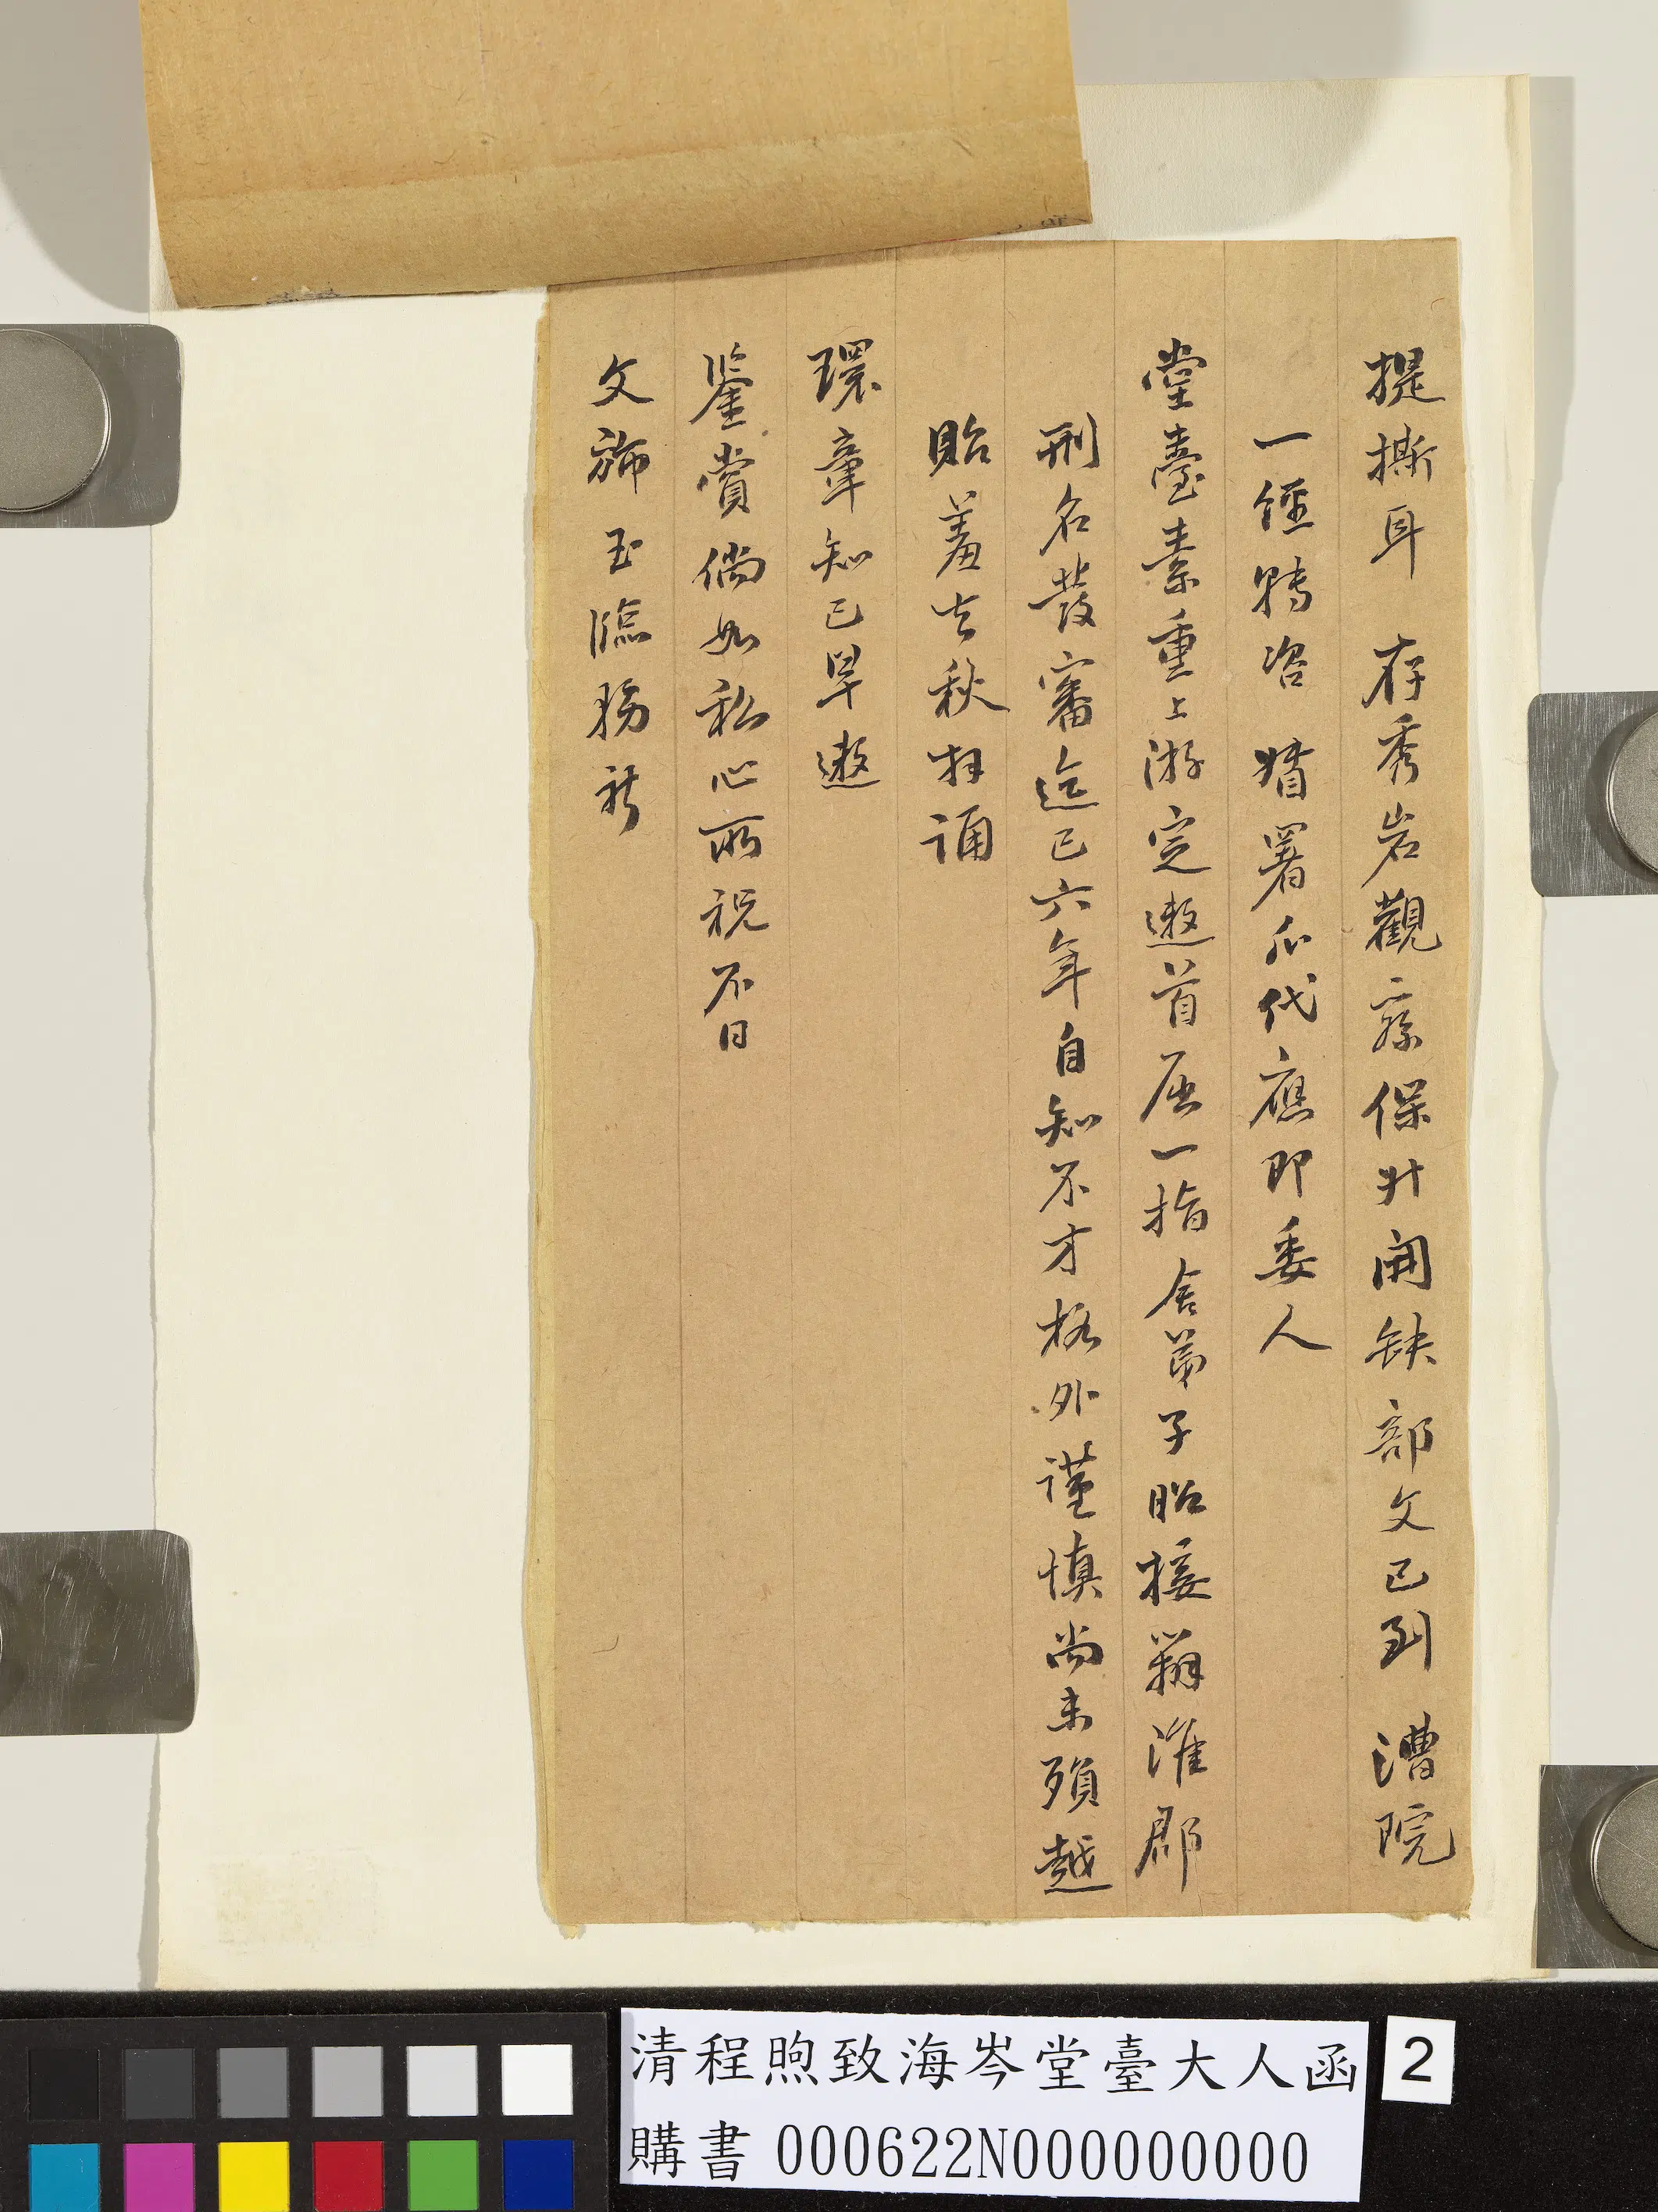 提撕耳　存秀岩觀察保升開缺部文已到　漕院
一經轉咨　督署瓜代應即委人
堂臺素重上游定邀首屈一指舍弟子昭接辦淮郡
刑名發審迄已六年自知不才格外謹慎尚未隕越
貽羞去秋拜誦
環章知已早邀
鑒賞倘如私心所祝不日
文旆玉臨務祈
清程煦致海岑堂臺大人函
購書 000622N000000000
2